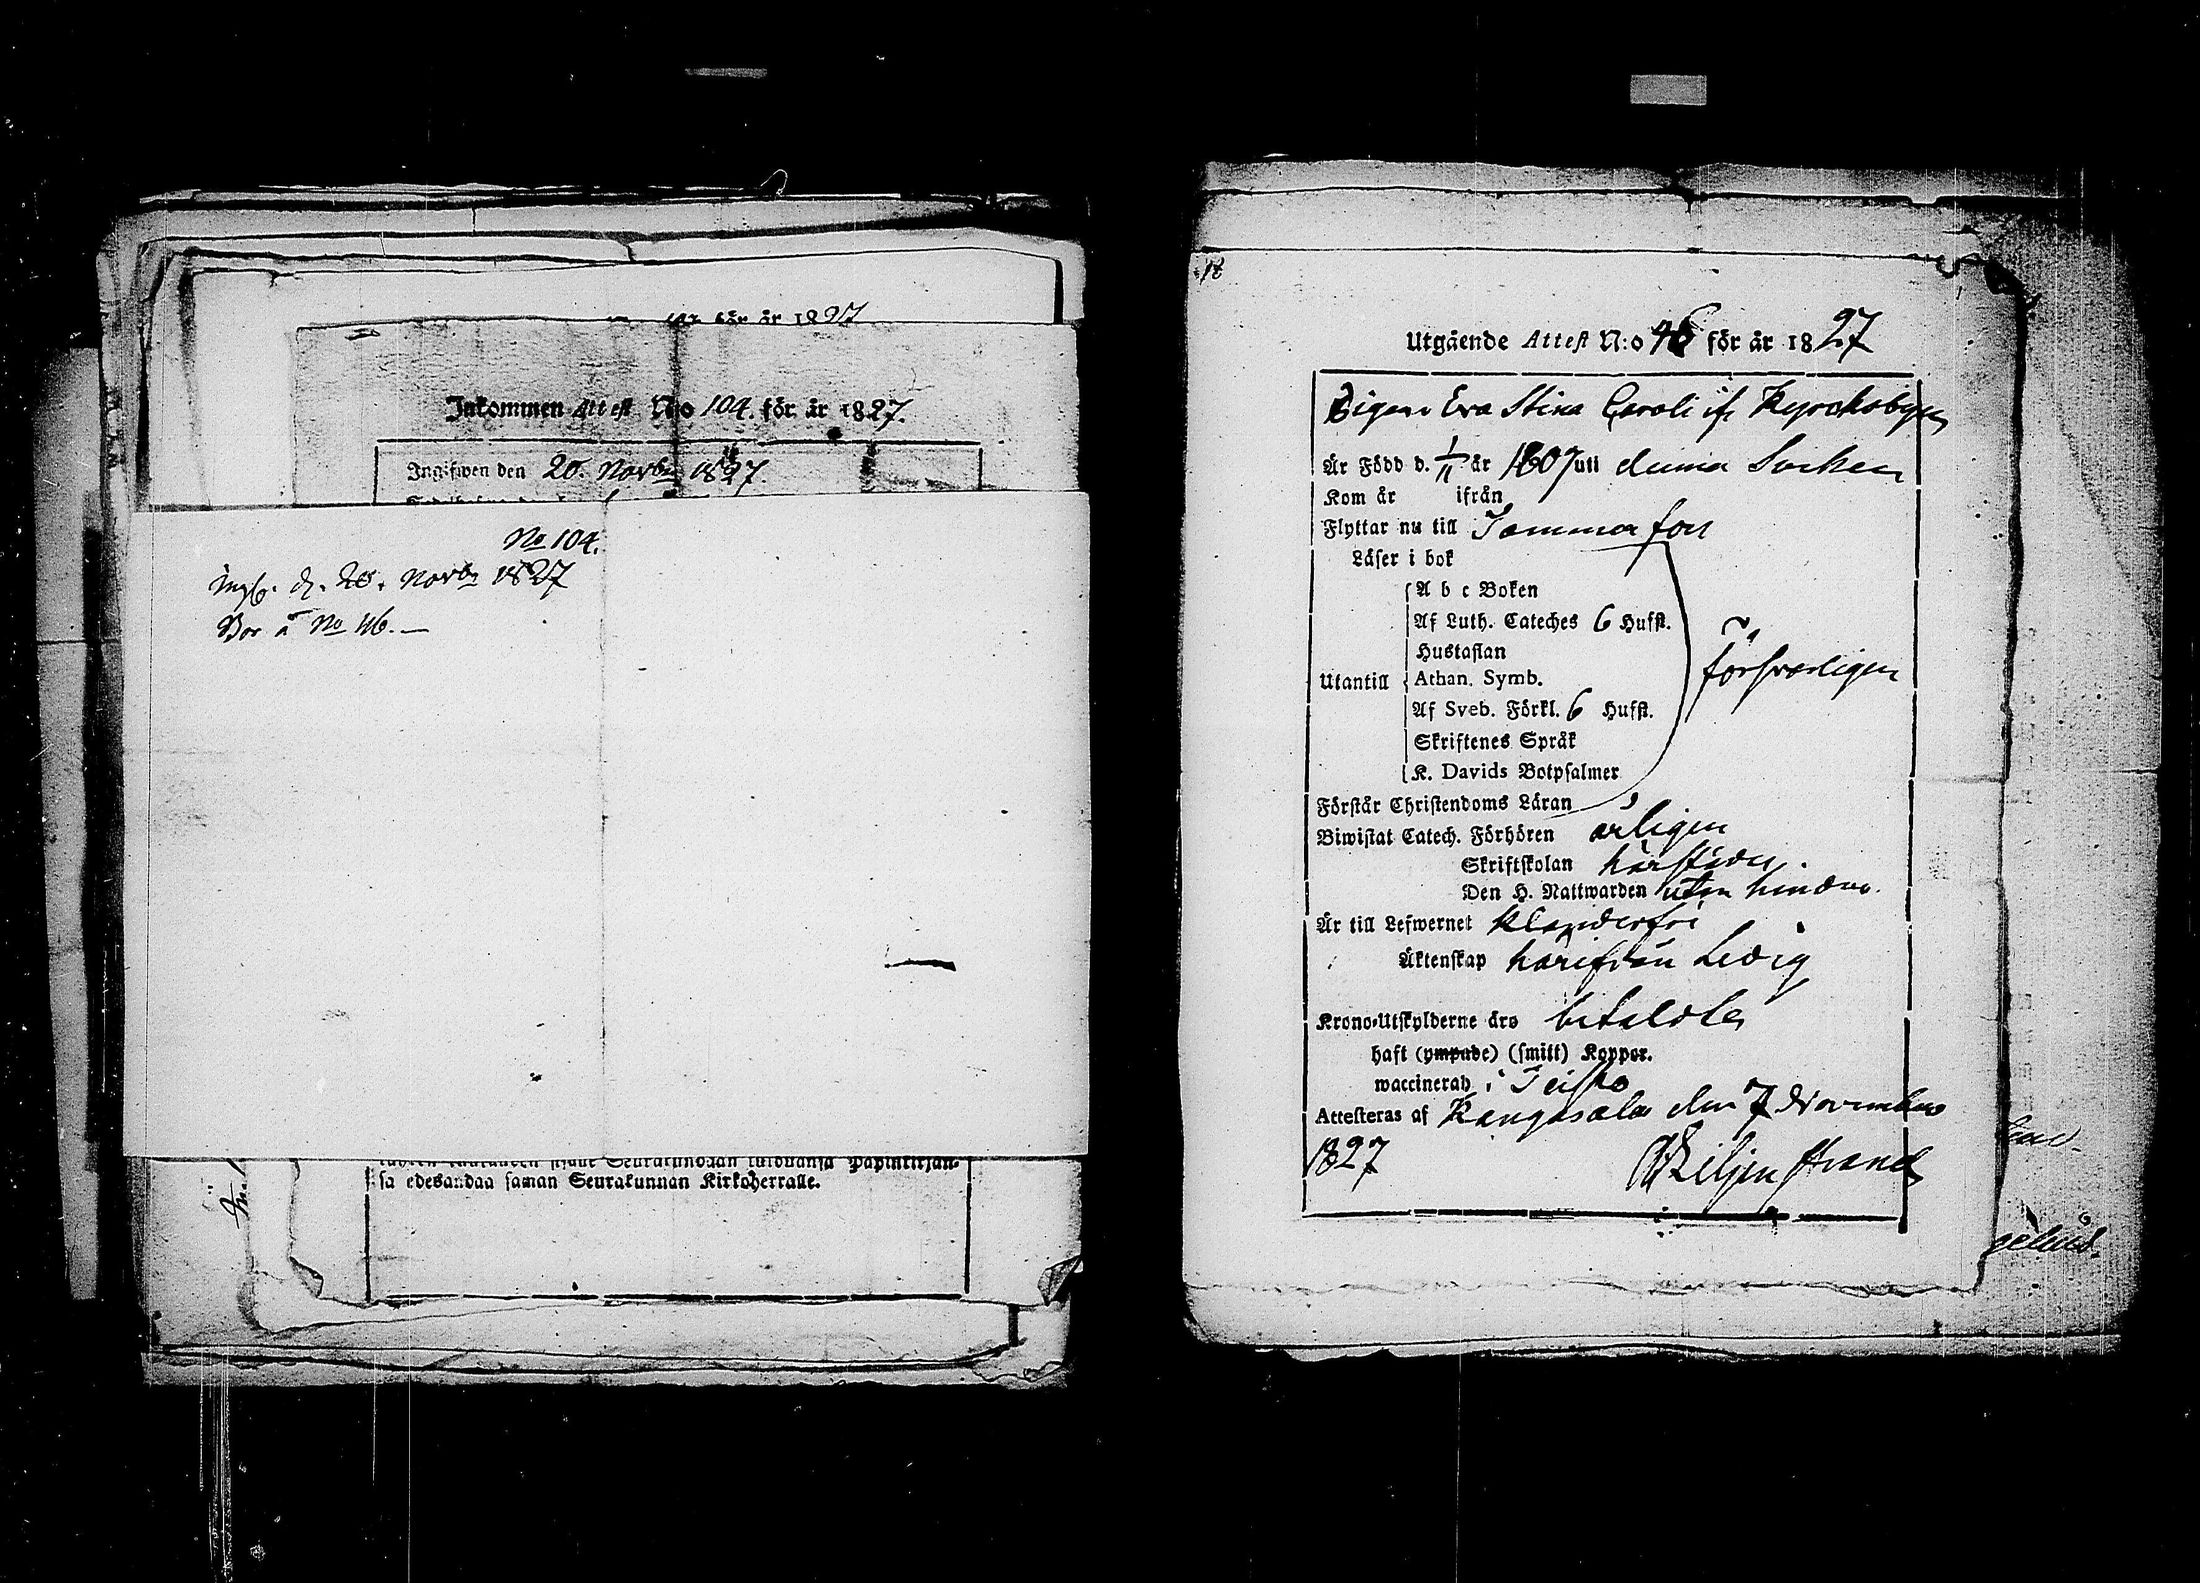 för år 1827
Inkommen Attest N:o 104. för år 1827.
Ingifwen den 20. Novbr 1827.
No 104.
ingf. d. 20. Novbr 1827
Bor å No 46. —
sa edesandaa saman Seurakunnan Kirkoherralle.
Utgående Attest N:o 46 för år 1827
Pigan Eva Stina Caroli if. Kyrckobyn
Är Född d. 1/11 år 1807 uti denna Socken
Kom år ifrån
Flyttar nu till Tammerfors
Läser i bok
A b c Boken
Af Luth. Cateches 6 Hufst.
Hustaflan
Utantill Athan. Symb. försvarligen
Af Sveb. Förkl. 6 Hufst.
Skriftenes Språk
K. Davids Botpsalmer
Förstår Christendoms Läran
Biwistat Catech. Förhören årligen
Skriftskolan härstädes.
Den H. Nattwarden utan hinder.
Är till Lefwernet klanderfri
Äktenskap härifrån Ledig
Krono-Utskylderne äro betalde
haft (ympade) (smitt) Koppor.
waccinerad i Teisko
Attesteras af Kangasala den 7 November
1827